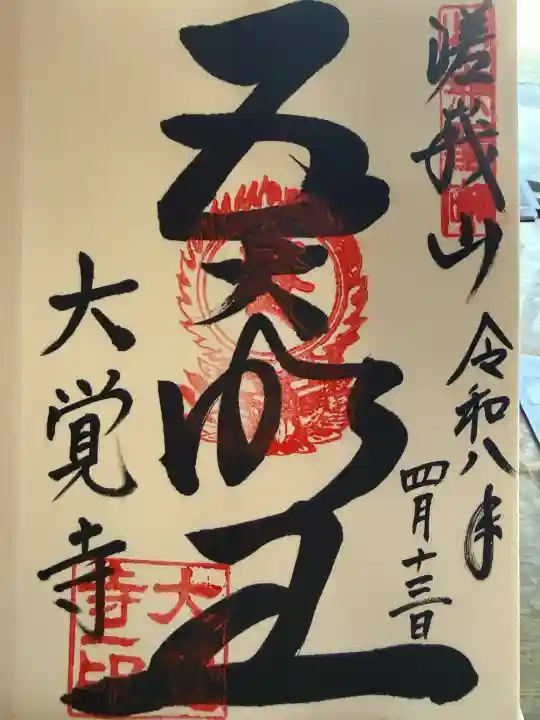 嵯峨山
令和八年
四月十三日
五大明王
大覚寺